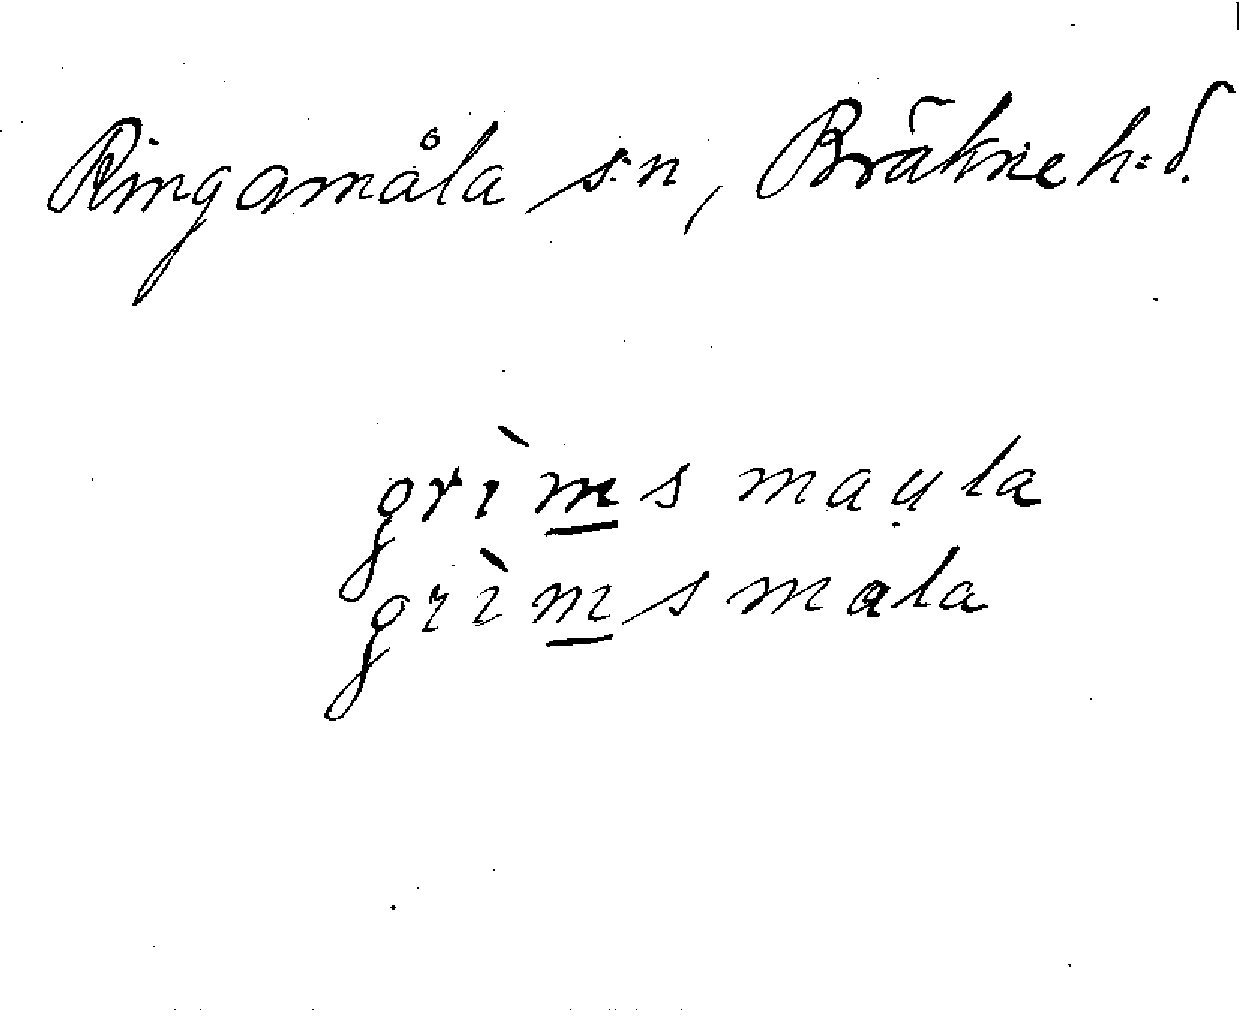 Ringamåla s:n, Bräkne h:d.
grìm̲s mau̩la
grìm̲s mala